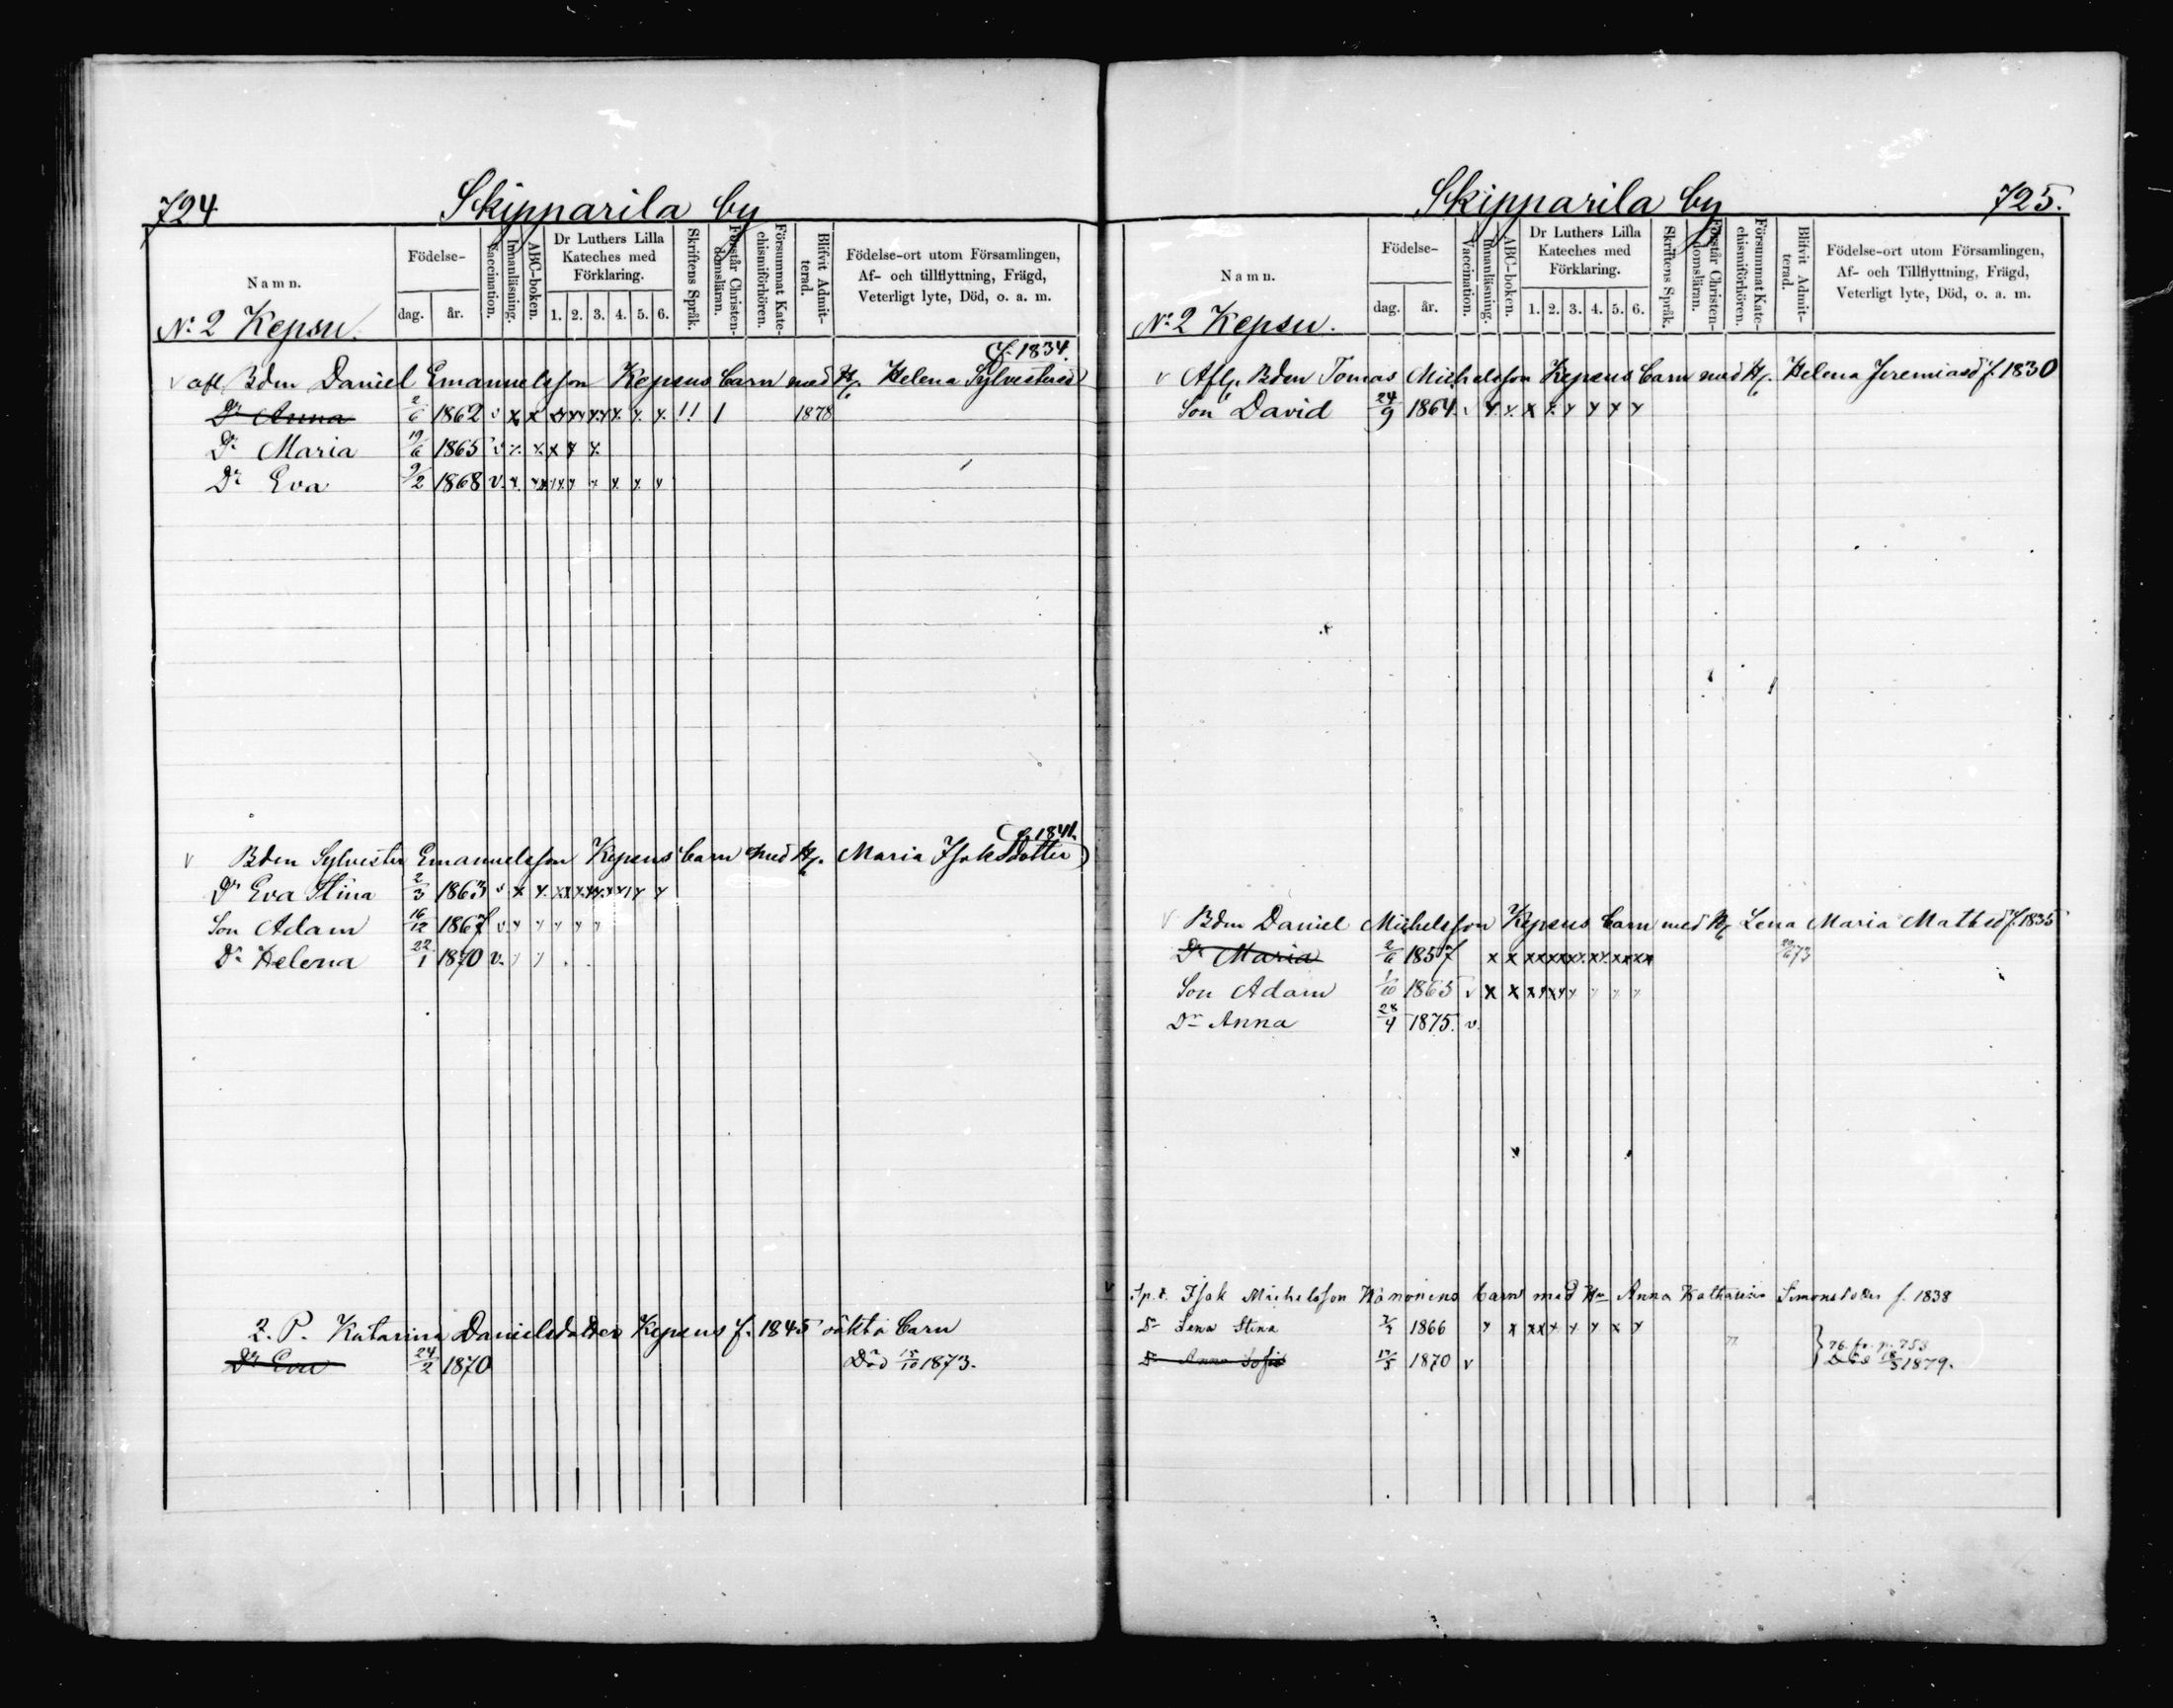 724
Skipparila by
Namn.
Födelse-
dag.
år.
Vaccination.
Innanläsning.
ABC-boken.
Dr Luthers Lilla Kateches med Förklaring.
1. 2. 3. 4. 5. 6.
Skriftens Språk.
Förstår Christendomsläran.
Försummat Katechismiförhören.
Blifvit Admitterad.
Födelse-ort utom Församlingen,
Af- och tillflyttning, Frägd,
Veterligt lyte, Död, o. a. m.
No 2 Kepsu.
f. 1834.
v afl. Bdm Daniel Emanuelsson Kepsus barn med H. Helena Sylvestersd
Dr Anna 2/6 1862 v x x x x x x x x x x !! 1 1878
Dr Maria 19/6 1865 v x x x x x
Dr Eva 9/2 1868 v. x x x x x x x x x x
f. 1841.
v Bdm Sylvester Emanuelsson Kepsus barn med H. Maria Isaksdotter
Dr Eva Stina 2/3 1863 v x x x x x x x x x x x
Son Adam 16/12 1867 v. x x x x x
Dr Helena 22/1 1870 v. x x . .
2. P. Katarina Danielsdotter Kepsus f. 1845 oäkta barn
Dr Eva 24/2 1870 Död 15/10 1873.
Skipparila by
725.
Namn.
Födelse-
dag.
år.
Vaccination.
Innanläsning.
ABC-boken.
Dr Luthers Lilla Kateches med Förklaring.
1. 2. 3. 4. 5. 6.
Skriftens Språk.
Förstår Christendomsläran.
Försummat Katechismiförhören.
Blifvit Admitterad.
Födelse-ort utom Församlingen,
Af- och Tillflyttning, Frägd,
Veterligt lyte, Död, o. a. m.
No 2 Kepsu.
v Afl. Bdm Tomas Michelsson Kepsus barn med H. Helena Jeremiasd f. 1830
Son David 24/9 1864 v x x x x x x x x
v Bdm Daniel Michelsson Kepsus barn med H. Lena Maria Matsd f. 1835
Dr Maria 2/6 1857 x x x x x x x x x x x x x 73
Son Adam 1/10 1865 v x x x x x x x x x
Dr Anna 28/4 1875. v.
v Isak Michelsson Hänninens barn med Hu Anna Katharina Simonsdotter f. 1838
Dr Lena Stina 1866 x x x x x x x x x
Dr Anna Sofia 1870 v } 76. fr. p. 753
Död 18/3 1879.